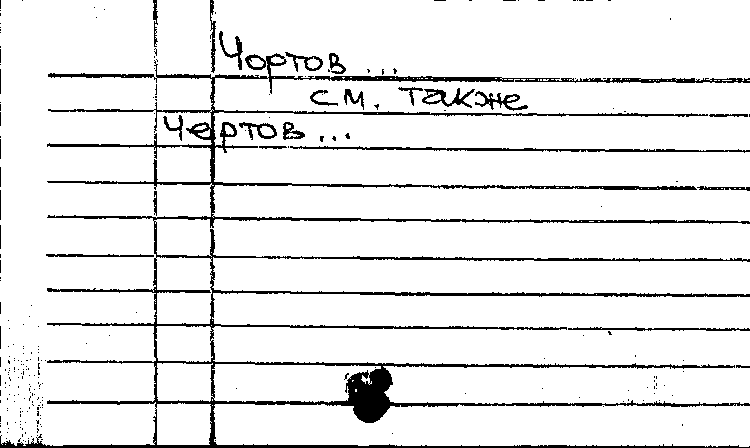 Чортов ...
см. также
Чертов ...